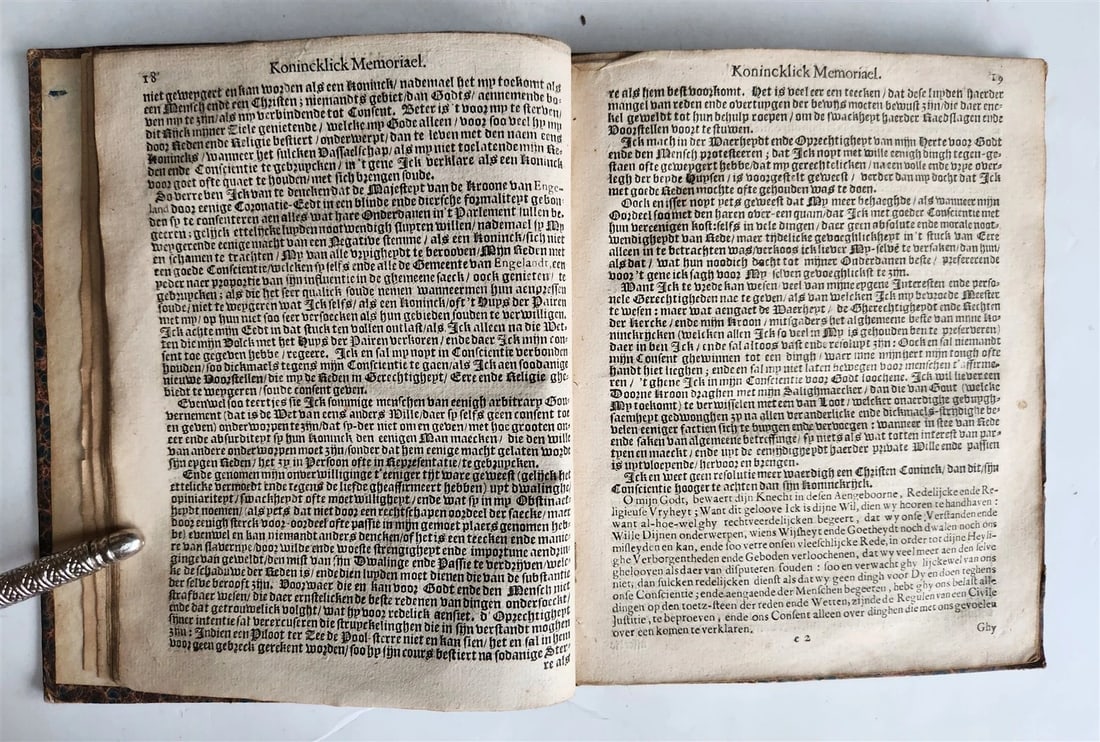 18
Konincklick Memoriael.
niet geweygert en kan worden als een Koninck / nademael het my toekomt als
een Mensch ende een Christen; niemandts gebiet / dan Godts / aennemende bo-
ven my te zijn / als my verbindende tot Consent. Beter is 't voor my te sterven /
dit Rijck mijner Ziele genietende / welcke my Gode alleen / voor soo veel hy my
door Reden ende Religie bestiert / onderwerpt / dan te leven met den naem eens
Konincks / wanneer het sulcken Vassaelschap / als my niet toelatende mijn Re-
den ende Conscientie te gebruycken / in 't gene Ick verklare als een Koninck
voor goet ofte quaet te houden / met sich brengen soude.
So verre ben Ick van te dencken dat de Majesteyt van de Kroone van Enge-
land door eenige Coronatie-Eedt in een blinde ende diersche formaliteyt gebon-
den zy te consenteren aen alles wat hare Onderdanen in 't Parlement sullen be-
geeren; gelijck ettelijcke luyden nootwendigh sluyten willen / nademael sy My
weygerende eenige macht van een Negative stemme / als een Koninck / sich niet
en schamen te trachten / My van alle vryigheydt te berooven / Mijn Reden met
een goede Conscientie / welcken sy selfs ende alle de Gemeente van Engelandt, een
yeder naer proportie van sijn influentie in de ghemeene saeck / oock genieten / te
gebruycken; als die het seer qualick soude nemen wanneer men hun aenpressen
soude / niet te weygeren wat Ick selfs / als een Koninck / oft 't Huys der Pairen
met my / op hun niet soo seer versoecken als hun gebieden souden te verwilligen.
Ick achte mijn Eedt in dat stuck ten vollen ontlast / als Ick alleen na die Wet-
ten die mijn Volck met het Huys der Pairen verkoren / ende daer Ick mijn con-
sent toe gegeven hebbe / regeere. Ick en sal my noyt in Conscientie verbonden
houden / soo dickmaels tegens mijn Conscientie te gaen / als Ick aen soodanige
nieuwe Voorstellen / die my de Reden in Gerechtigheyt / Eere ende Religie ghe-
biedt te weygeren / soude consent geven.
Evenwel soo teertjes sie Ick sommige menschen van eenigh arbitrary Gou-
vernement (dat is de Wet van eens anders Wille / daer sy selfs geen consent tot
en geven) onderworpen te zijn / dat sy-der niet om en geven / met hoe grooten on-
eer ende absurditeyt sy hun Koninck den eenigen Man maecken / die den wille
van andere onderworpen moet zijn / sonder dat hem eenige macht gelaten wordt
sijn eygen Reden / het zy in Persoon ofte in Representatie / te gebruycken.
Ende genomen mijn onverwilliginge t' eeniger tijt ware geweest (gelijck het
ettelicke vermoedt ende tegens de liefde gheaffirmeert hebben) uyt dwalinghe
opiniariteyt / swackheydt ofte moetwilligheyt / ende wat sy in my Obstinaet-
heydt noemen / als yets dat niet door een rechtschapen oordeel der saecke / maer
door eenigh sterck voor-oordeel ofte passie in mijn gemoet plaets genomen heb-
be) evenwel en kan niemandt anders dencken / of het is een teecken ende manie-
re van slavernye / door wilde ende woeste strengigheyt ende importune aendrin-
ginge van geweldt / den mist van sijn Dwalinge ende Passie te verdrijven / welc-
ke de schaduwe der Reden is / ende dien luyden moet dienen die van de substantie
der selve berooft zijn. Voorwaer die en kan voor Godt ende den Mensch niet
strafbaer wesen / die daer ernstelicken de beste redenen van dingen ondersoeckt /
ende dat getrouwelick volght / wat hy voor redelick aensiet. d'Oprechtigheyt
sijner intentie sal verexcuseren die struyckelinghen die in sijn verstandt moghen
zijn: Indien een Piloot ter Zee de Pool-sterre niet en kan sien / het en sal in hem
voor geen gebreck gerekent worden / soo hy sijn cours bestiert na sodanige Ster-
re als
Konincklick Memoriael.
19
re als hem best voorkomt. Het is veel eer een teecken / dat dese luyden haerder
mangel van reden ende overtuygen der bewijs moeten bewust zijn / die daer ene-
kel geweldt tot hun behulp roepen / om de swackheyt haerder Raedslagen ende
Voorstellen voort te stuwen.
Ick mach in der Waerheydt ende Oprechtigheyt van mijn Herte voor Godt
ende den Mensch protesteeren; dat Ick noyt met wille eenigh dingh tegen-ge-
staen ofte geweygert hebbe / dat my gerechtelick / na een volle ende vrye over-
legh der beyde Huysen / is voorgestelt geweest / verder dan my docht dat Ick
met goede Reden mochte ofte gehouden was te doen.
Oock en isser noyt yets geweest dat My meer behaeghde / als wanneer mijn
Oordeel soo met den haren over-een quam / dat Ick met goeder Conscientie met
hun vereenigen kost; selfs in vele dingen / daer geen absolute ende morale noot-
wendigheydt van Rede / maer tijdelicke gevoeghlickheyt in 't stuck van Eere
alleen in te betrachten was / verkoos ick liever My-selve te versaken / dan hun;
als dat / wat hun noodich docht tot mijner Onderdanen beste / prefererende
voor 't gene ick sagh voor My selven gevoeghlickst te zijn.
Want Ick te vrede kan wesen / veel van mijne eygene Interesten ende perso-
nele Gerechtigheden nae te geven / als van welcken Ick my bevroede Meester
te wesen: maer wat aengaet de Waerheyt / de Gherechtigheydt ende Rechten
der Kercke / ende mijn Kroon / mitsgaders het alghemeene beste van mijne Ko-
ninckrijcken / (welcken allen Ick so veel in My is gehouden ben te preserveren)
daer in ben Ick / ende sal altoos vast ende resolut zijn: Oock en sal niemandt
mijn Consent ghewinnen tot een dingh / waer inne mijn hert mijn tongh ofte
handt hiet lieghen; ende en sal my niet laten bewegen voor menschen t'affirme-
ren / 't ghene Ick in mijn Conscientie voor Godt loochene. Ick wil liever een
Doorne Kroon draghen met mijn Salighmaecker / dan die van Gout (welcke
My toekomt) te verwisselen met een van Loot / welcker onaerdighe gebuygh-
saemheydt gedwonghen zy na allen veranderlicke ende dickmaels-strijdighe be-
velen eeniger factien sich te buygen ende vervoegen: wanneer in stee van Rede
ende saken van algemeene betreffinge / sy niets als wat totten interest van par-
tyen en maeckt / ende uyt de eensijdigheyt haerder private Wille ende passien
is uytvloeyende / hervoor en brengen.
Ick en weet geen resolutie meer waerdigh een Christen Coninck / dan dit / sijn
Conscientie hooger te achten dan sijn Koninckrijck.
O mijn Godt, bewaert dijn Knecht in desen Aengeboorne, Redelijcke ende Re-
ligieuse Vryheyt; Want dit geloove Ick is dijne Wil, dien wy hooren te handhaven:
want al-hoe-wel ghy rechtveerdelijcken begeert, dat wy onse Verstanden ende
Wille Dijnen onderwerpen, wiens Wijsheyt ende Goetheydt noch dwalen noch ons
misleyden en kan, ende soo verre onsen vleeschlijcke Rede, in order tot dijne Heyli-
ghe Verborgentheden ende Geboden verloochenen, dat wy veel meer aen den selve
ghelooven als daer van disputeren souden: soo en verwacht ghy lijckewel van ons
niet, dan sulcken redelijcken dienst als dat wy geen dingh voor Dy en doen teghens
onse Conscientie; ende aengaende der Menschen begeeren, hebt ghy ons belast alle
dingen op den toetz-steen der reden ende Wetten, zijnde de Regulen van een Civile
Justitie, te beproeven, ende ons Consent alleen over dinghen die met ons gevoelen
over een komen te verklaren.
c 2
Ghy